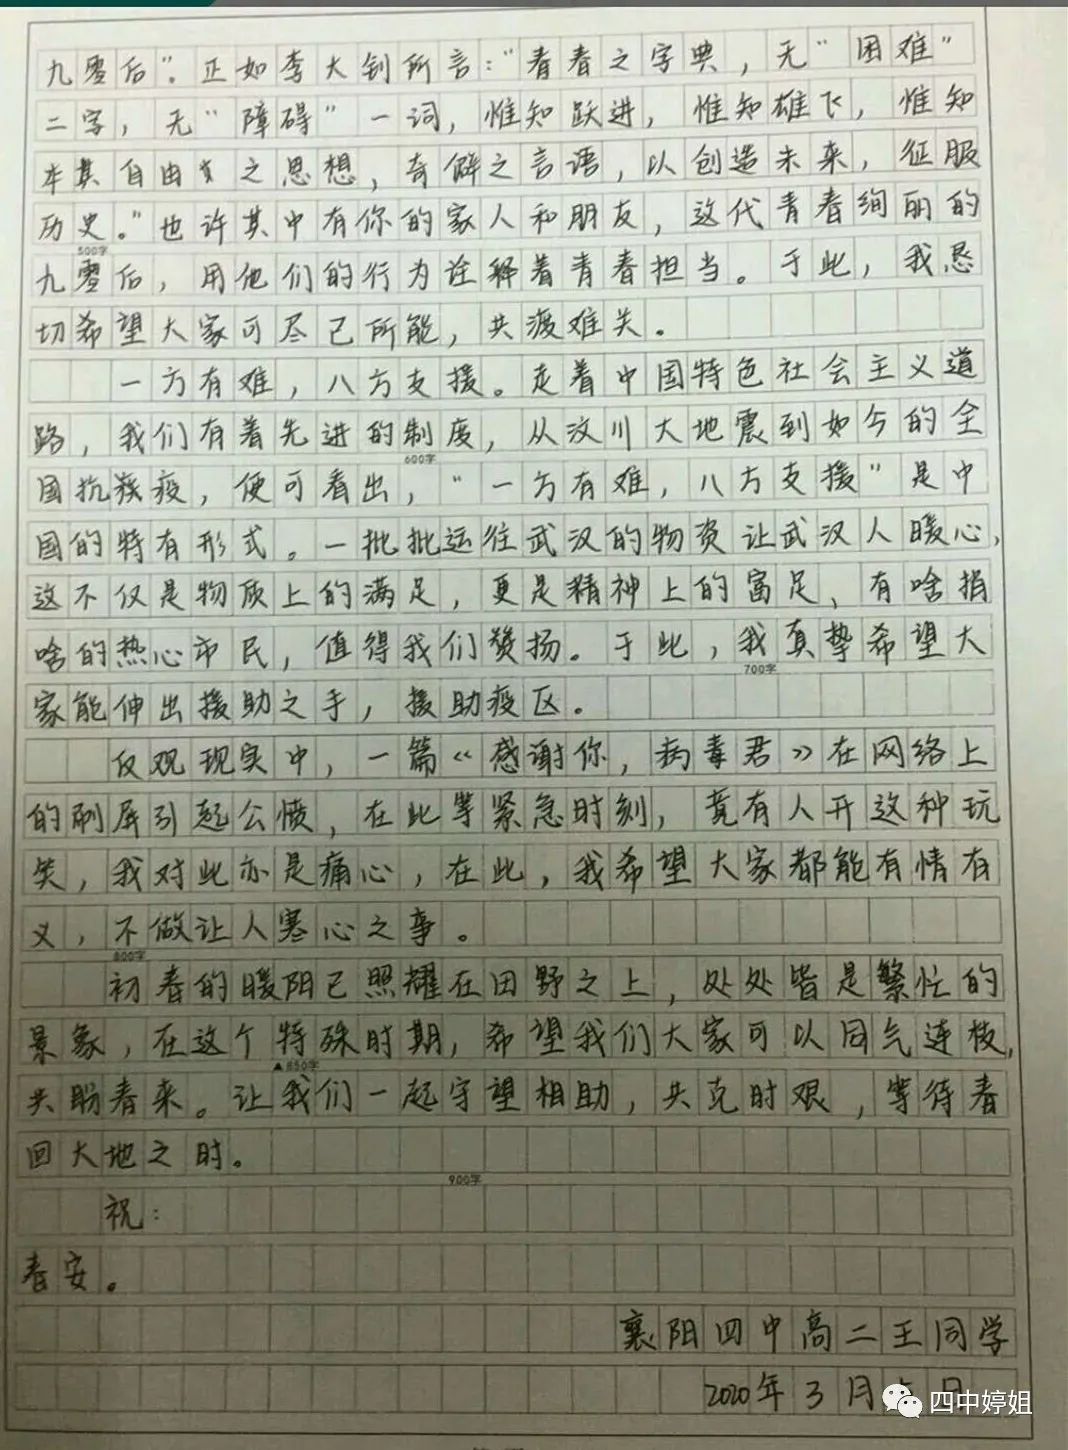 九零后”。正如李大钊所言：“青春之字典，无“困难”
二字，无“障碍”一词，惟知跃进，惟知雄飞，惟知
本其自由之思想，奇僻之言语，以创造未来，征服
历史。”也许其中有你的家人和朋友，这代青春绚丽的
500字
九零后，用他们的行为诠释着青春担当。于此，我恳
切希望大家可尽己所能，共渡难关。
一方有难，八方支援。走着中国特色社会主义道
路，我们有着先进的制度，从汶川大地震到如今的全
600字
国抗疫，便可看出，“一方有难，八方支援”是中
国的特有形式。一批批运往武汉的物资让武汉人暖心，
这不仅是物质上的满足，更是精神上的富足，有啥捐
啥的热心市民，值得我们赞扬。于此，我真挚希望大
700字
家能伸出援助之手，援助疫区。
反观现实中，一篇《感谢你，病毒君》在网络上
的刷屏引起公愤，在此等紧急时刻，竟有人开这种玩
笑，我对此亦是痛心，在此，我希望大家都能有情有
义，不做让人寒心之事。
800字
初春的暖阳已照耀在田野之上，处处皆是繁忙的
景象，在这个特殊时期，希望我们大家可以同气连枝，
▲850字
共盼春来。让我们一起守望相助，共克时艰，等待春
回大地之时。
900字
祝：
春安。
襄阳四中高二王同学
2020年3月 日
四中婷姐